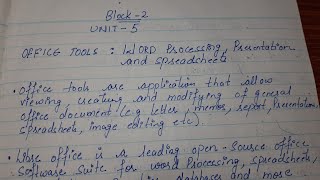 Block-2
UNIT-5
OFFICE TOOLS : WORD Processing, Presentation
and spreadsheets
• Office tools are application that allow
viewing, creating and modifying of general
office document (e.g. letter, memos, report, Presentation
spreadsheets, image editing etc).
• Libre office is a leading open-source office
Software suite for word Processing, spreadsheets,
databases and more